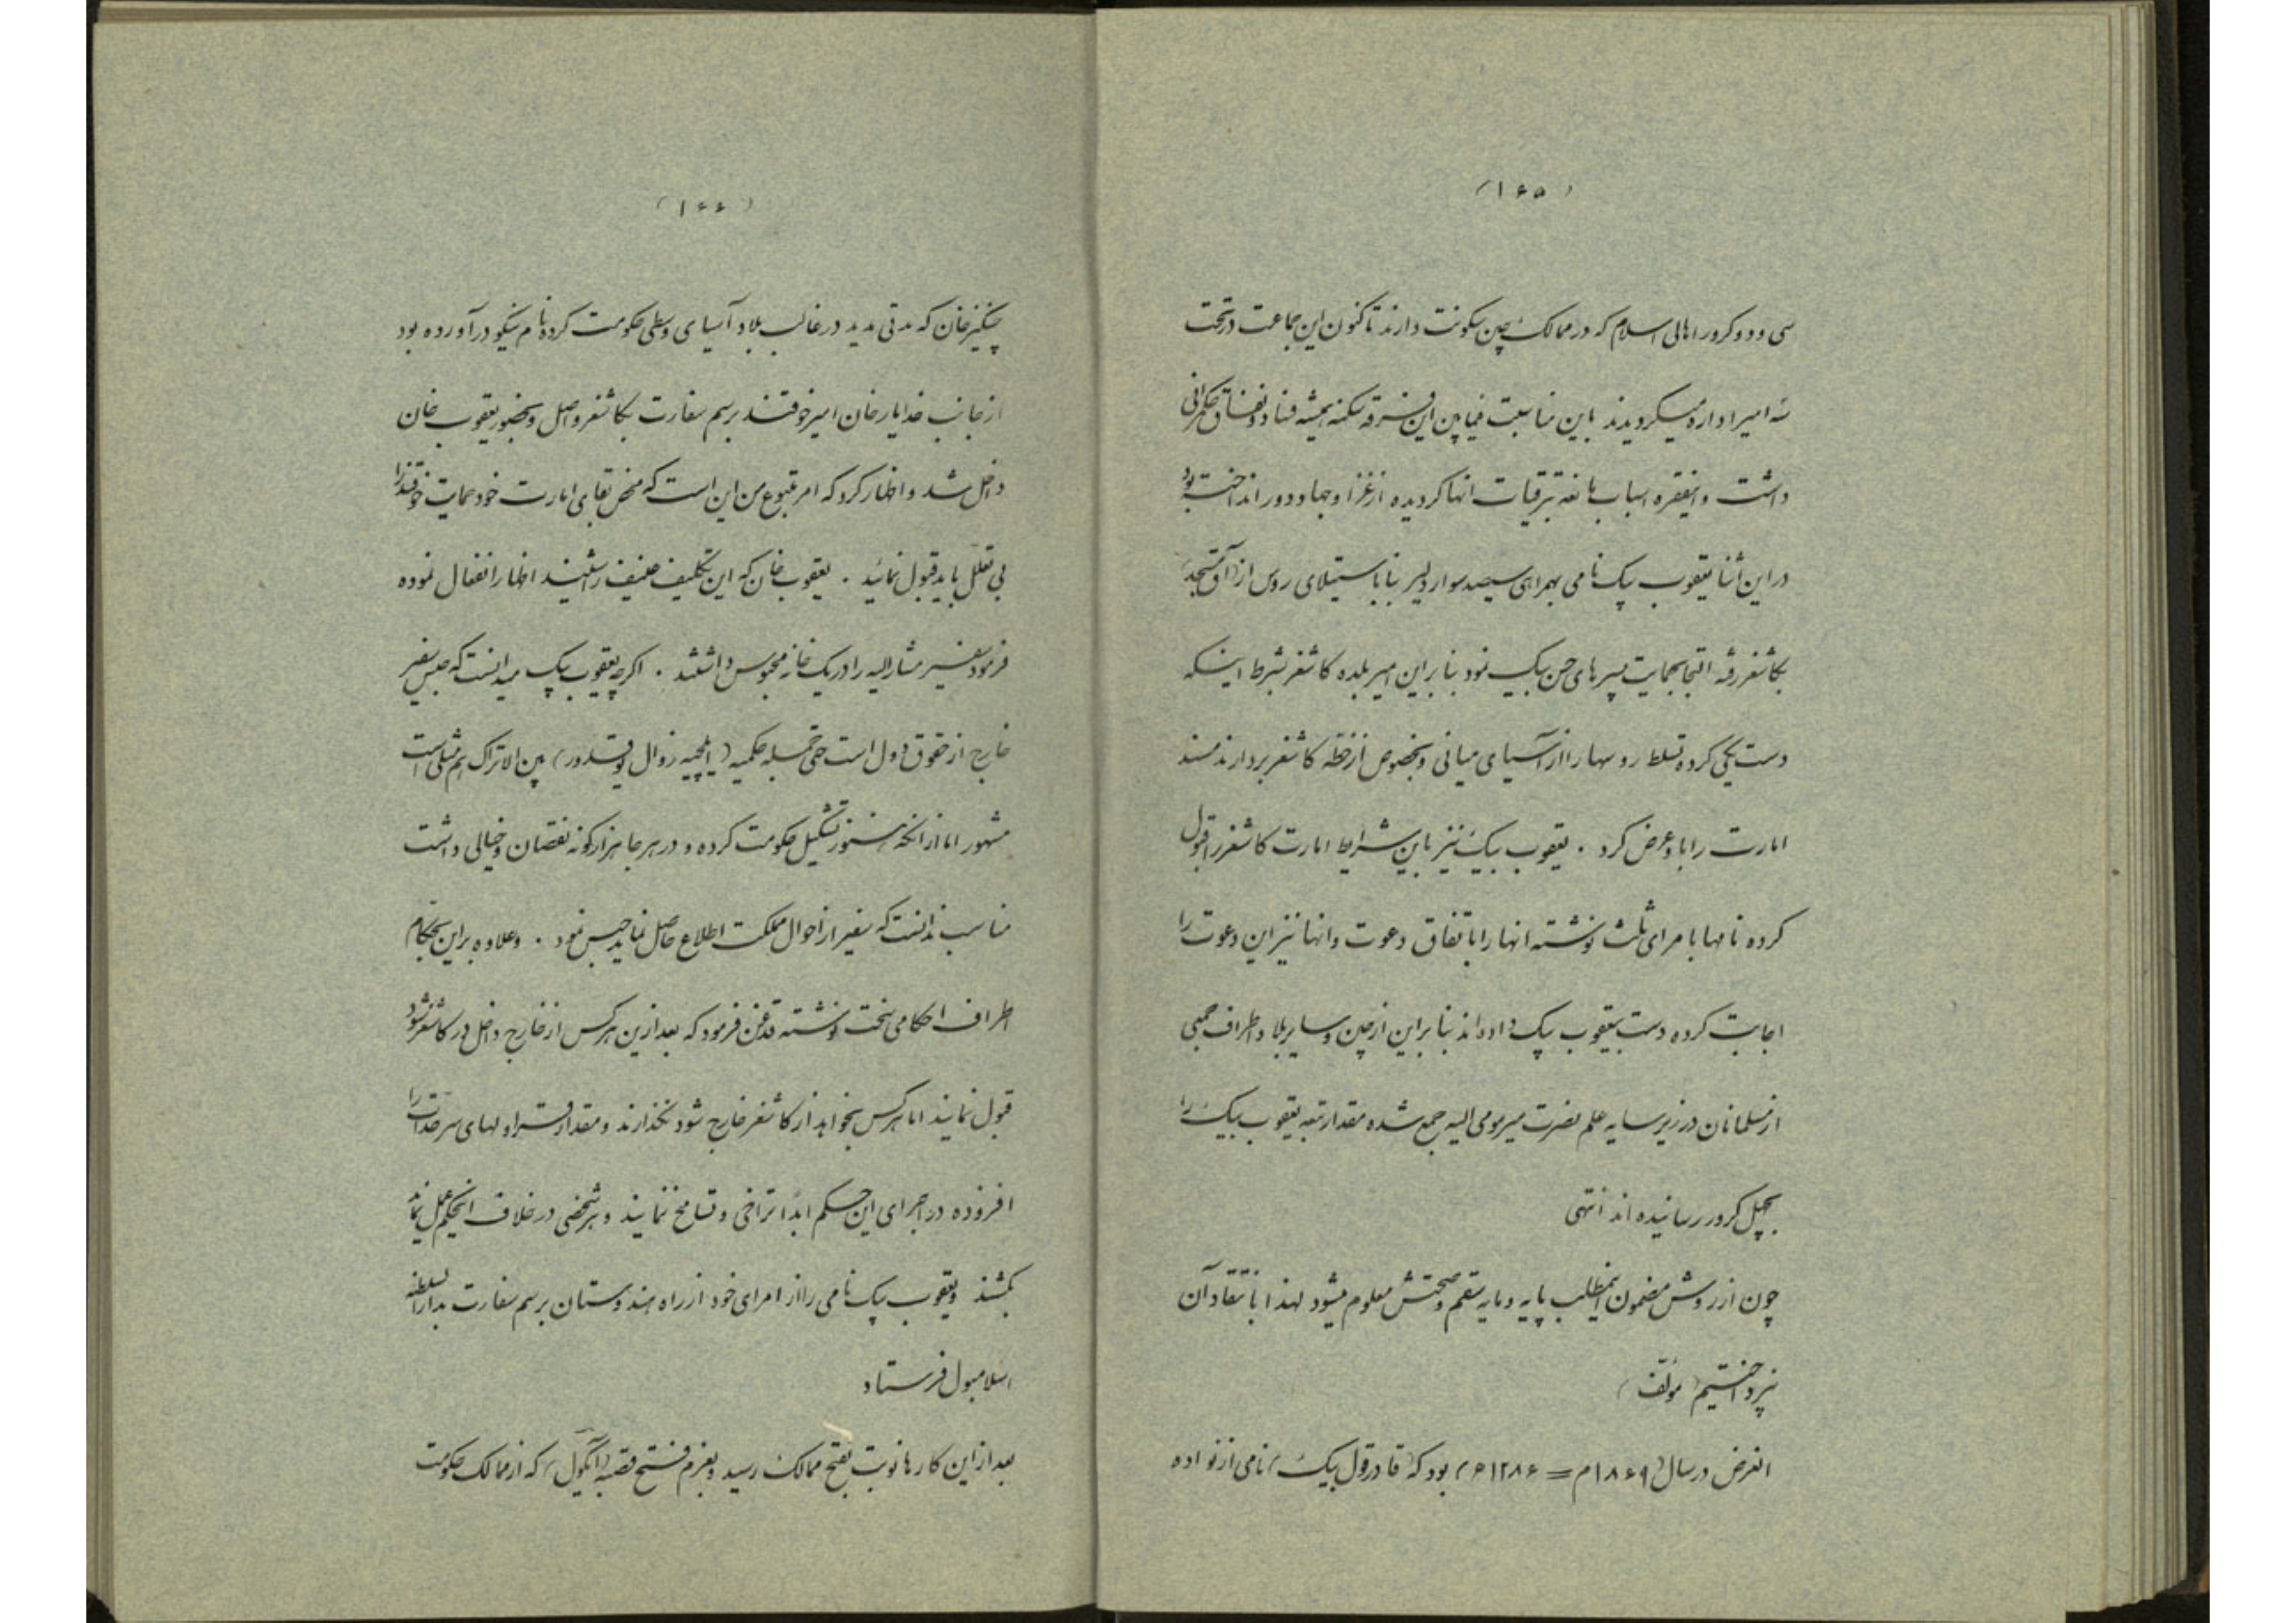 (۱۶۵)
سی و دو کرور اهالی اسلام که در ممالک چین سکونت دارند تاکنون این جماعت در تحت
سه امیر اداره میگردیدند باین مناسبت فیمابین این فرقه سکنه همیشه فساد و نفاق حکمرانی
داشت و اینفقره اسباب مانعه ترقیات انها گردیده از غزا و جهاد دور انداخته بود
در این اثنا یعقوب بیک نامی بهمراهی سیصد سوار دلیر بنا باستیلای روس از (آق مسجد)
بکاشغر رفته التجا بحمایت پسرهای حسن بیک نمود بنابراین امیر بلده کاشغر بشرط اینکه
دست یکی کرده تسلط روسها را از آسیای میانی و بخصوص از خطه کاشغر بردارند مسند
امارت را باو عرض کرد . یعقوب بیک نیز باین شرایط امارت کاشغر را قبول
کرده نامها بامرای ثلث نوشته انها را باتفاق دعوت و انها نیز این دعوت را
اجابت کرده دست بیعقوب بیک داده‌اند بنابراین از چین و سایر بلاد و اطراف جمعی
از مسلمانان در زیر سایه علم نصرت میر مومی الیه جمع شده مقدار تبعه یعقوب بیک را
بچهل کرور رسانیده اند انتهی
چون از روش مضمون اینمطلب پایه و مایه سقم و صحتش معلوم میشود لهذا بانتقاد آن
نپرداختیم (مؤلف)
الغرض در سال (۱۸۶۹م = ۱۲۸۶ه) بود که (قادرقول بیک) نامی از نواده
(۱۶۶)
چنگیزخان که مدتی مدید در غالب بلاد آسیای وسطی حکومت کرده نام نیکو درآورده بود
از جانب خدایارخان امیر خوقند برسم سفارت بکاشغر واصل و بحضور یعقوب خان
داخل شد و اظهار کرد که امر متبوع من این است که محض بقای امارت خود حمایت خوقند را
بی تعلل باید قبول نمائید . یعقوب خان که این تکلیف عنیف را شنید اظهار انفعال نموده
فرمود سفیر مشارالیه را در یک خانه محبوس داشتند . اگرچه یعقوب بیک میدانست که حبس سفیر
خارج از حقوق دول است حتی جمله حکمیه (ایلچیه زوال یوقدور) بین الاتراک هم مثلی است
مشهور اما از انکه هنوز تشکیل حکومت کرده و در هر جا هزار گونه نقصان و خیالی داشت
مناسب ندانست که سفیر از احوال مملکت اطلاع حاصل نماید حبس نمود . و علاوه براین بحکام
اطراف احکامی سخت نوشته قدغن فرمود که بعد ازین هرکس از خارج داخل در کاشغر شود
قبول نمایند اما هرکس بخواهد از کاشغر خارج شود نگذارند و مقدار قراولهای سرحدات را
افزوده در اجرای این حکم ابدا تراخی و تسامح ننمایند و هر شخصی در خلاف انحکم عمل نماید
بکشند و یعقوب بیک نامی را از امرای خود از راه هندوستان برسم سفارت بدارالسلطنه
اسلامبول فرستاد
بعد از این کارها نوبت بفتح ممالک رسید و بعزم فتح قصبه (آنکول) که از ممالک حکومت